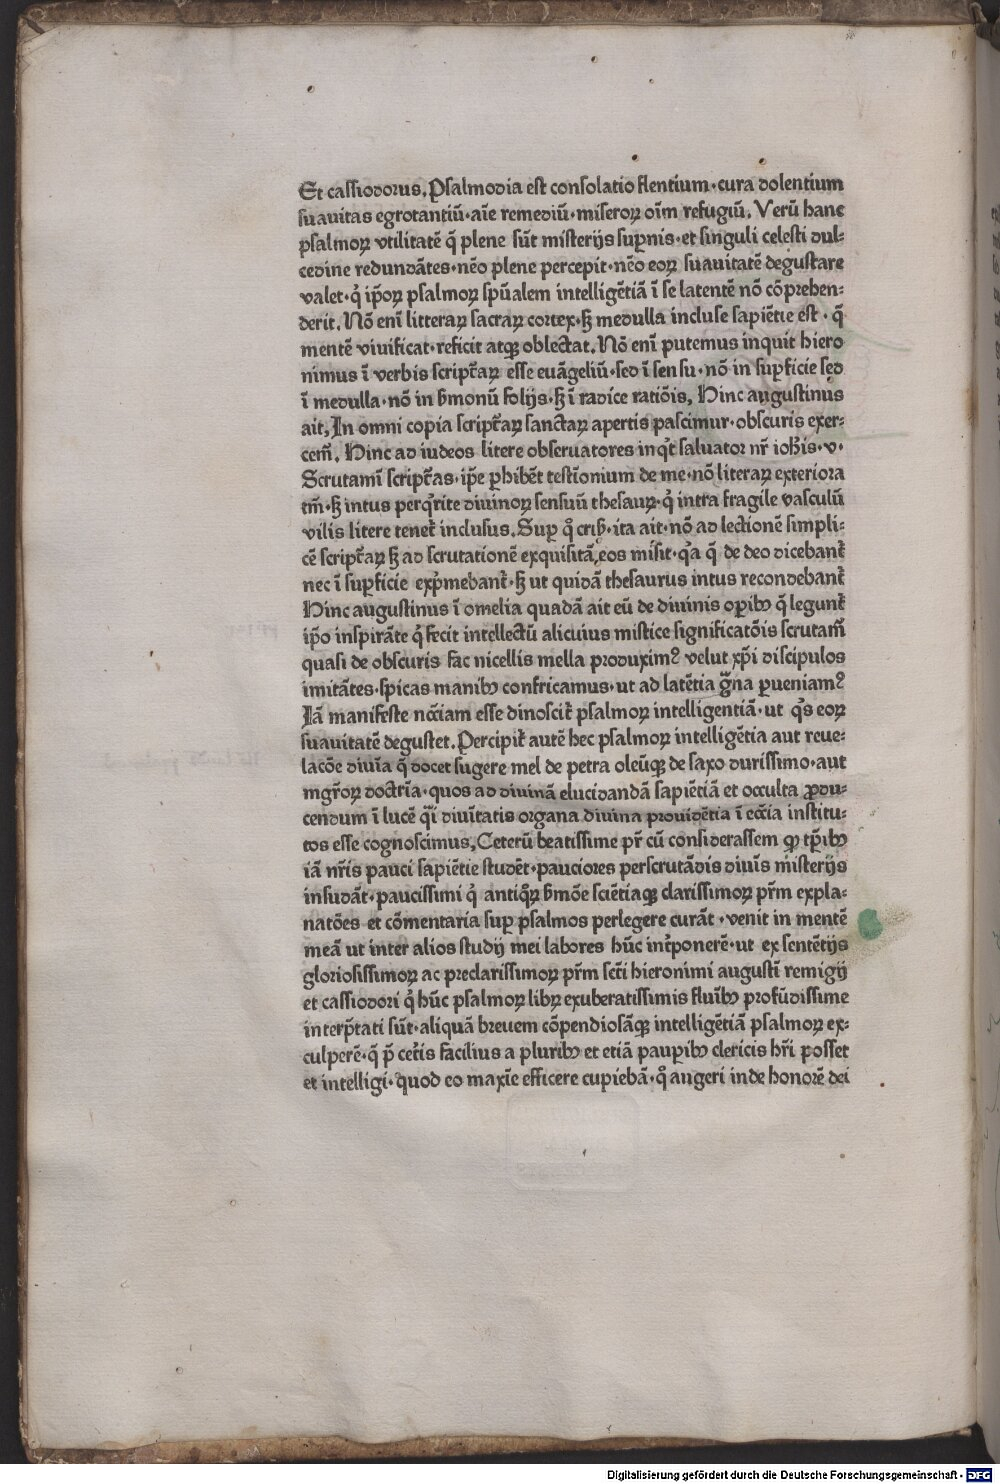 Et cassiodorus. Psalmodia est consolatio flentium·cura dolentium
suauitas egrotantiū·aīe remediū·miseroꝝ oīm refugiū. Verū hanc
psalmoꝝ vtilitatē q̄ plene sūt misterijs suꝑnis·et singuli celesti dul⸗
cedine redundātes·nēo plene percepit·nēo eoꝝ suauitatē degustare
valet·qͥ ip̄oꝝ psalmoꝝ spūalem intelligētiā ī se latentē nō cōprehen⸗
derit. Nō enī litteraꝝ sacraꝝ cortex·ꝫ medulla incluse sapiētie est·q̄
mentē viuificat·reficit atqꝫ oblectat. Nō enī putemus inquit hiero
nimus ī verbis scriptr̄aꝝ esse euāgeliū·sed ī sensu·nō in suꝑficie sed
ī medulla·nō in ẜmonū folijs·ꝫ ī radice ratiōis. Hinc augustinus
ait. In omni copia scriptr̄aꝝ sanctaꝝ apertis pascimur·obscuris exer⸗
cem̄. Hinc ad iudeos litere obseruatores inqͥt saluator nr̄ ioh̄is·v·
Scrutamī scriptr̄as·ip̄e ꝑhibēt testīonium de me·nō literaꝝ exteriora
tm̄·ꝫ intus perqͥrite diuinoꝝ sensuū thesauꝝ·qͥ intra fragile vasculū
vilis litere tenet᷑ inclusus. Suꝑ qͦ criꝫ·ita ait·nō ad lectionē simpli⸗
cē scriptr̄aꝝ ꝫ ad scrutationē exquisitā eos misit·qͣa q̄ de deo dicebant᷑
nec ī suꝑficie expͥmebant᷑·ꝫ ut quidā thesaurus intus recondebant᷑
Hinc augustinus ī omelia quadā ait eū de diuinis oꝑibꝫ q̄ legunt᷑
ip̄o inspirāte qͥ fecit intellectū alicuius mistice significatōis scrutam̄
quasi de obscuris fac nicellis mella produximꝰ velut xp̄i discipulos
imitātes·spicas manibꝫ confricamus·ut ad latētia gͣna ꝑueniamꝰ
Iā manifeste nccīam esse dinoscit᷑ psalmoꝝ intelligentiā·ut qͥs eoꝝ
suauitatē degustet. Percipit᷑ autē hec psalmoꝝ intelligētia aut reue⸗
lacōe diuīa q̄ docet sugere mel de petra oleūqꝫ de saxo durissimo·aut
mgr̄oꝝ doctrīa·quos ad diuinā elucidandā sapiētiā et occulta ꝓdu⸗
cendum ī lucē qͣi diuītatis organa diuina prouidētia ī ecc̄ia institu⸗
tos esse cognoscimus. Ceterū beatissime pr̄ cū considerassem ꝙ tp̄ibꝫ
iā nr̄is pauci sapiētie studēt·pauciores perscrutādis diuīs misterijs
insudāt·paucissimi qͥ antiqͦꝝ ẜmōe sciētiaqꝫ clarissimoꝝ pr̄m expla⸗
natōes et cōmentaria suꝑ psalmos perlegere curāt·venit in mentē
meā ut inter alios studij mei labores hūc int᷑ponerē·ut ex sentētijs
gloriosissimoꝝ ac preclarissimoꝝ pr̄m sct̄i hieronimi augustī remigij
et cassiodori qͥ hūc psalmoꝝ libꝝ exuberatissimis fluībꝫ profūdissime
interp̄tati sūt·aliquā breuem cōpendiosāqꝫ intelligētiā psalmoꝝ ex⸗
culperē·q̄ p̄ cet᷑is facilius a pluribꝫ et etiā pauꝑibꝫ clericis hr̄i posset
et intelligi·quod eo maxīe efficere cupiebā·qͦ angeri inde honorē dei
Digitalisierung gefördert durch die Deutsche Forschungsgemeinschaft - DFG